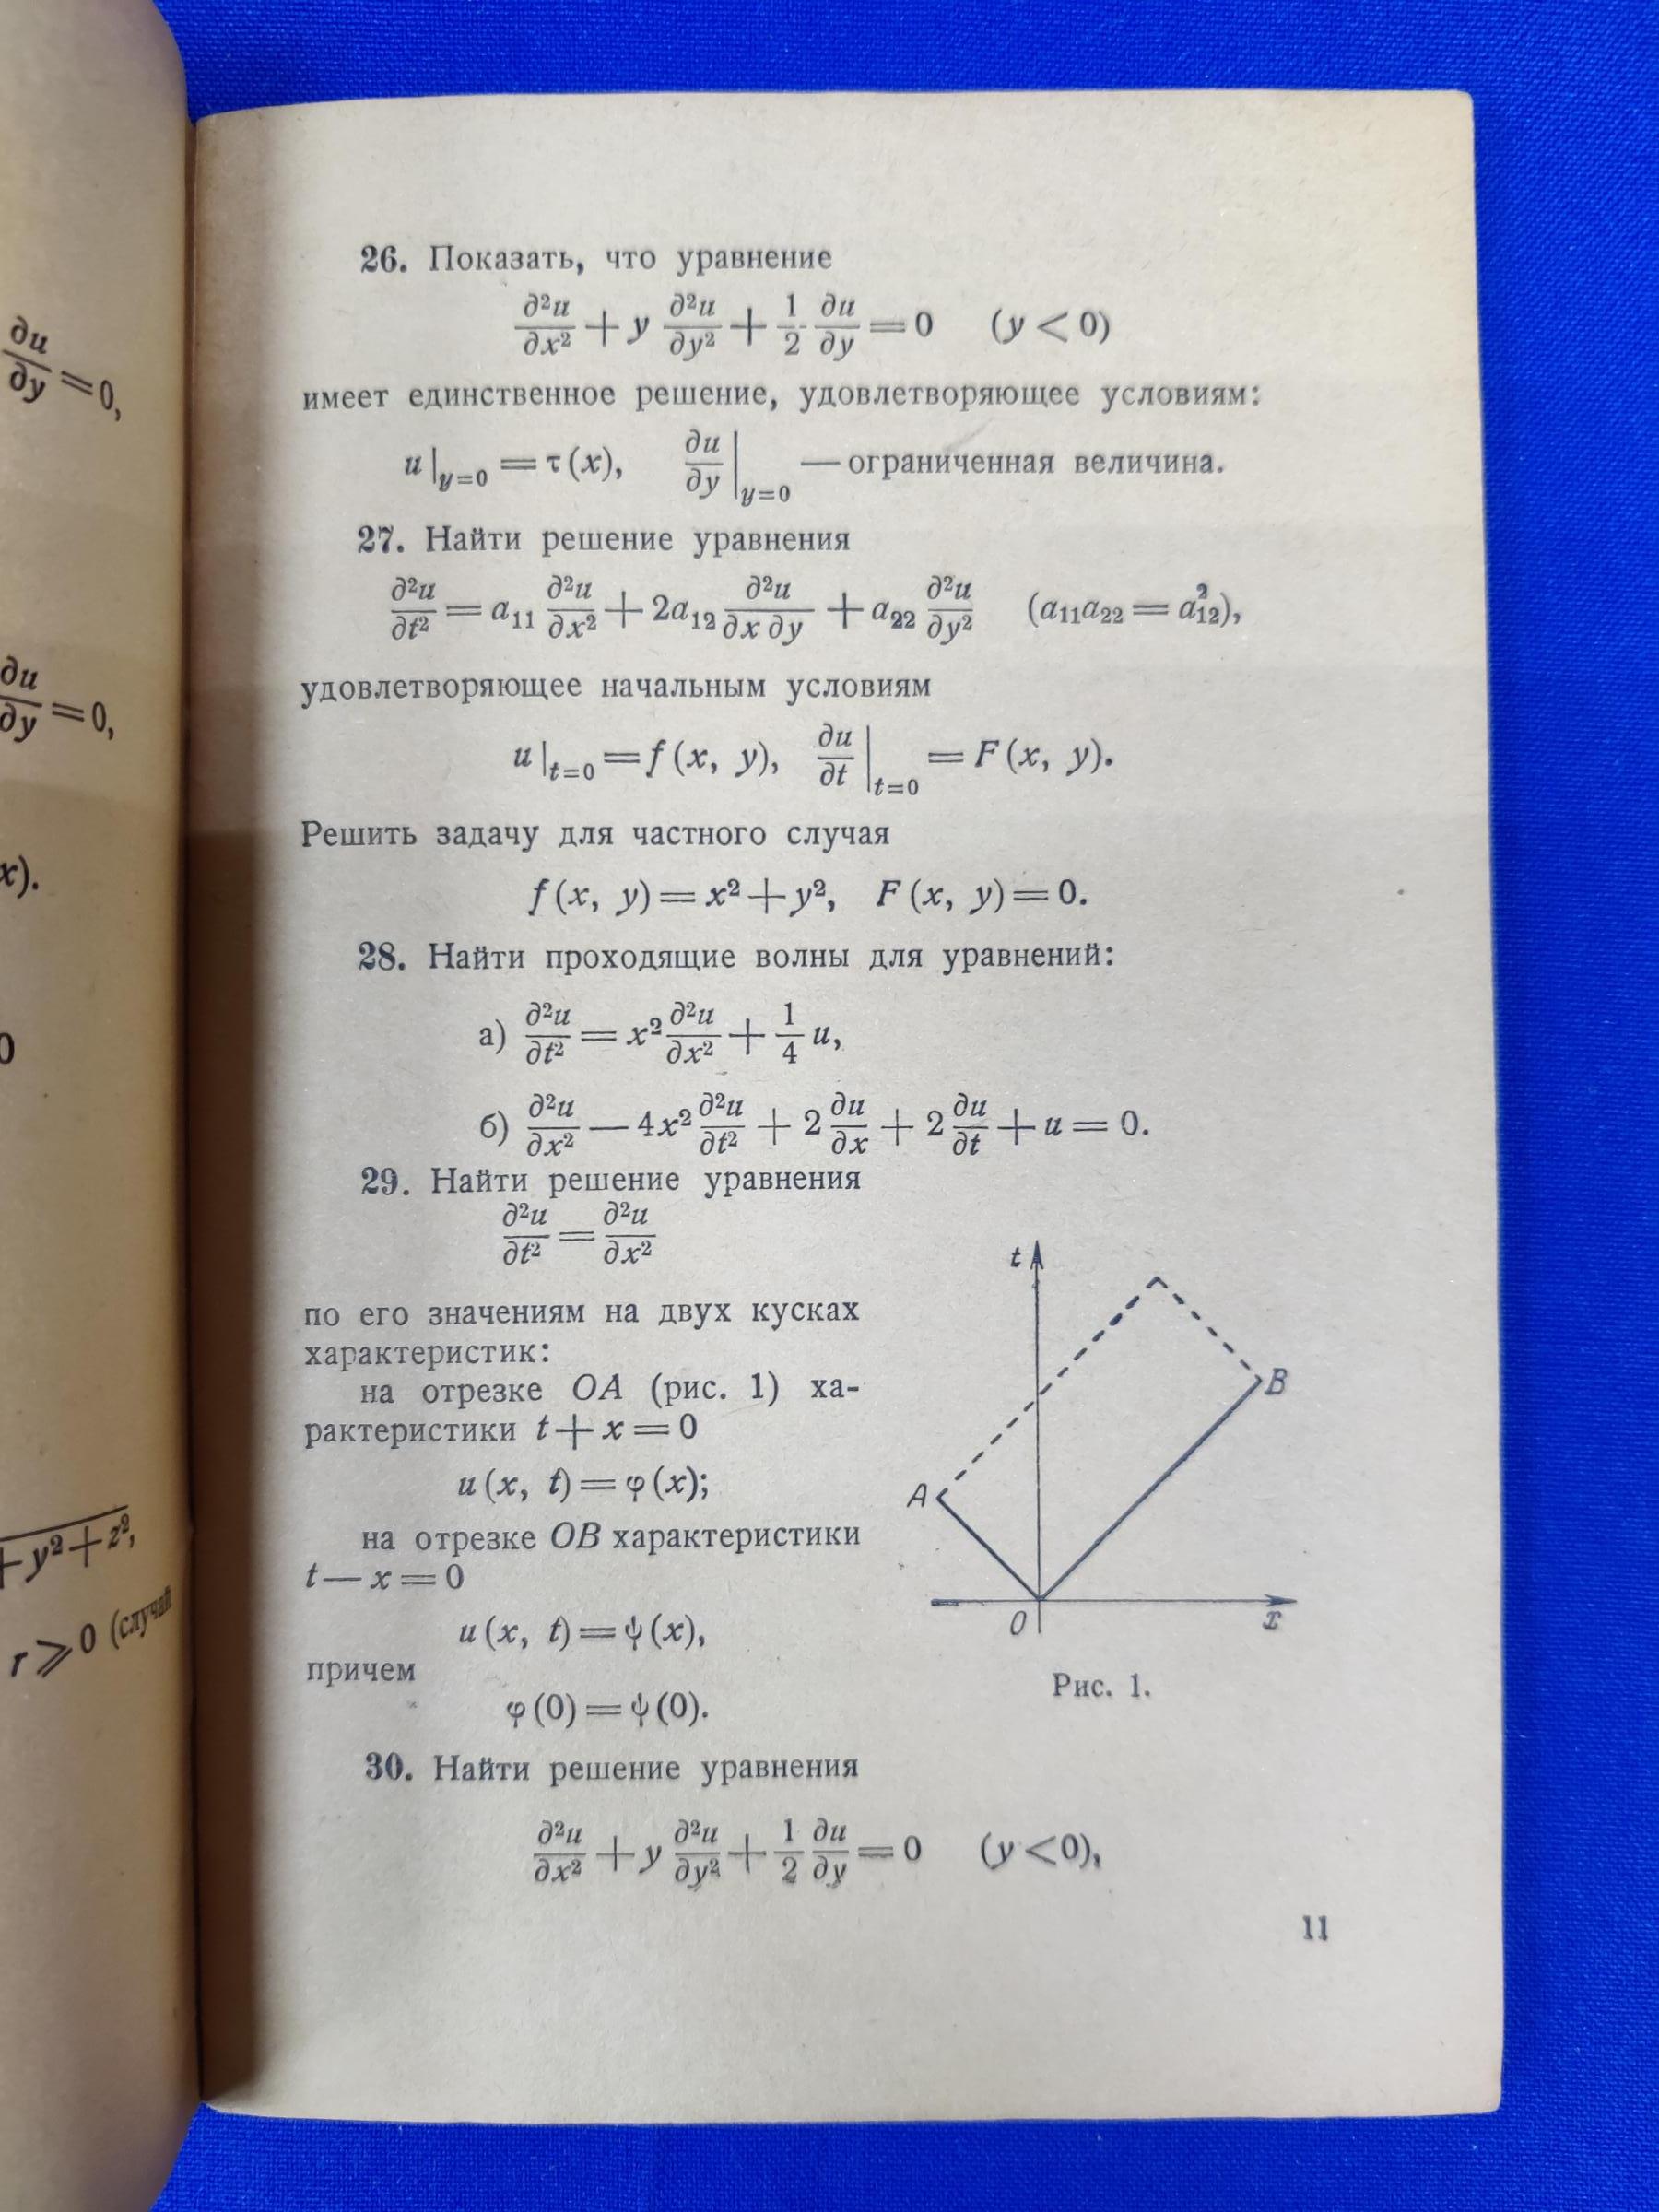 ∂u/∂y = 0,
∂u/∂y = 0,
x).
0
+ y² + z²,
r ⩾ 0 (случай
26. Показать, что уравнение
∂²u/∂x² + y ∂²u/∂y² + 1/2 ∂u/∂y = 0 (y < 0)
имеет единственное решение, удовлетворяющее условиям:
u|y=0 = τ(x), ∂u/∂y|y=0 — ограниченная величина.
27. Найти решение уравнения
∂²u/∂t² = a₁₁ ∂²u/∂x² + 2a₁₂ ∂²u/∂x ∂y + a₂₂ ∂²u/∂y² (a₁₁a₂₂ = a₁₂²),
удовлетворяющее начальным условиям
u|t=0 = f(x, y), ∂u/∂t|t=0 = F(x, y).
Решить задачу для частного случая
f(x, y) = x² + y², F(x, y) = 0.
28. Найти проходящие волны для уравнений:
а) ∂²u/∂t² = x² ∂²u/∂x² + 1/4 u,
б) ∂²u/∂x² — 4x² ∂²u/∂t² + 2 ∂u/∂x + 2 ∂u/∂t + u = 0.
29. Найти решение уравнения
∂²u/∂t² = ∂²u/∂x²
по его значениям на двух кусках
характеристик:
на отрезке OA (рис. 1) ха-
рактеристики t + x = 0
u(x, t) = φ(x);
на отрезке OB характеристики
t — x = 0
u(x, t) = ψ(x),
причем
φ(0) = ψ(0).
t
B
A
O
x
Рис. 1.
30. Найти решение уравнения
∂²u/∂x² + y ∂²u/∂y² + 1/2 ∂u/∂y = 0 (y < 0),
11